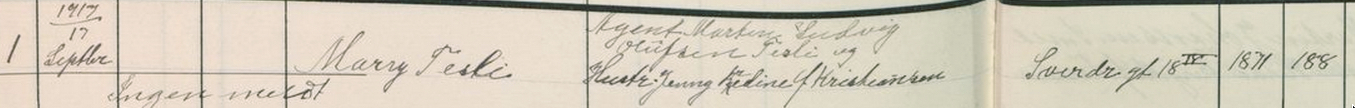 1917
1 17 Septbr Marry Teski Agent Martin Ludvig
Olufsen Teski og
Hustr. Jenny Nedine f Kristiansen Sverdr. gt 18 IV 1871 188
Ingen meldt